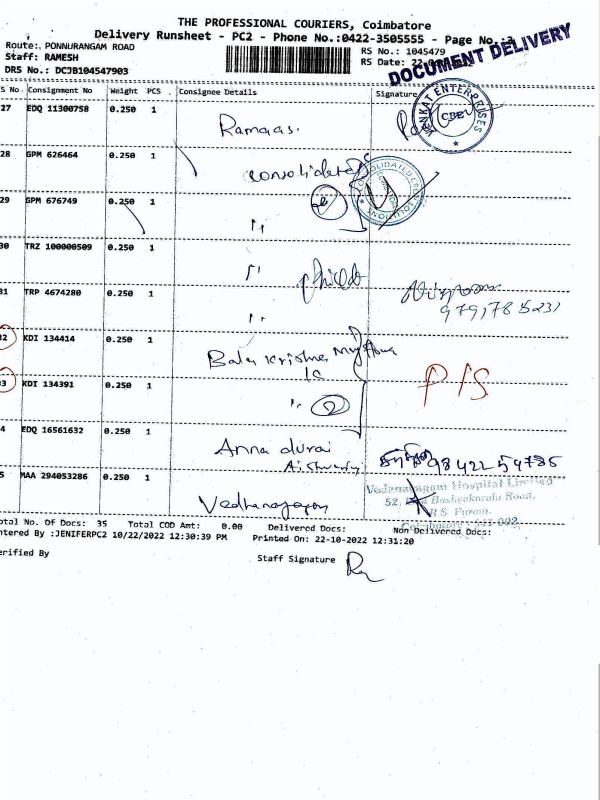 THE PROFESSIONAL COURIERS, Coimbatore
Delivery Runsheet - PC2 - Phone No.:0422-3505555 - Page No.:3
Route: PONNURANGAM ROAD
RS No.: 1045479
Staff: RAMESH
RS Date: 22-
DRS No.: DCJB104547903
DOCUMENT DELIVERY
S No. Consignment No Weight PCS . Consignee Details Signature
VENKAT ENTERPRISES
CBE
27 EDQ 11300758 0.250 1 Ramaas.
28 GPM 626464 0.250 1 consolidated
CONSOLIDATED
SOLUTIONS
29 GPM 676749 0.250 1 "
30 TRZ 100000509 0.250 1 "
31 TRP 4674280 0.250 1 "
32 KDI 134414 0.250 1 Bala Krishna
P/S
33 KDI 134391 0.250 1 " 2
4 EDQ 16561632 0.250 1 Anna durai
98422 59785
5 MAA 294053286 0.250 1 Vedhanayagam
Vedanayagam Hospital Limited
52, East Bashyakaralu Road,
R.S. Puram,
Coimbatore - 641 002.
otal No. Of Docs: 35 Total COD Amt: 0.00 Delivered Docs: Non Delivered Docs:
ntered By :JENIFERPC2 10/22/2022 12:30:39 PM Printed On: 22-10-2022 12:31:20
erified By
Staff Signature